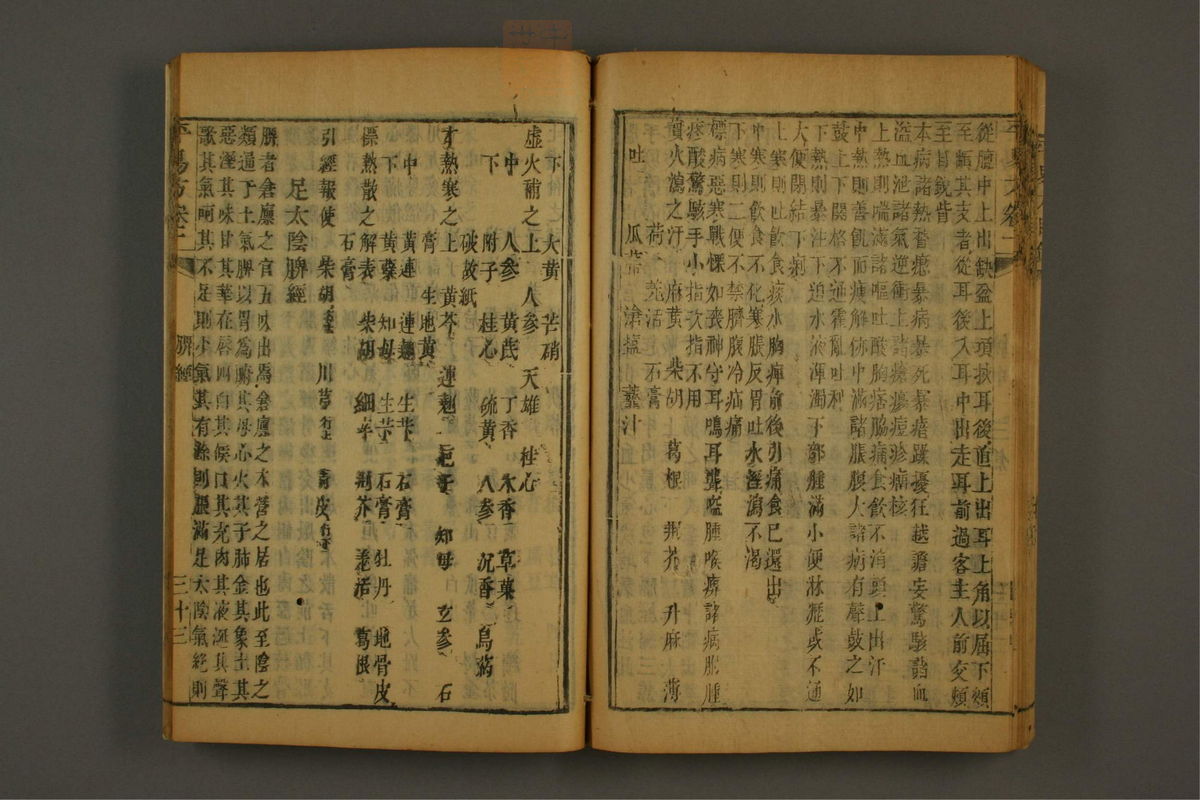 從膻中上出缺盆上項挾耳後直上出耳上角以屈下頰
至䪼其支者從耳後入耳中出走耳前過客主人前交頰
至目銳眥
本病諸熱瞀瘛暴病暴死暴瘖躁擾狂越譫妄驚駭諸血
溢血泄諸氣逆衝上諸瘡瘍痘疹瘤核
上熱則喘滿諸嘔吐酸胸痞脇痛食飲不消頭上出汗
中熱則善飢而瘦解㑊中滿諸脹腹大諸病有聲鼓之如
鼓上下關格不通霍亂吐利
下熱則暴注下迫水液渾濁下部腫滿小便淋瀝或不通
大便閉結下痢
上寒則吐飲食痰水胸痺前後引痛食已還出
中寒則飲食不化寒脹反胃吐水溼瀉不渴
下寒則二便不禁臍腹冷疝痛
標病惡寒戰慄如喪神守耳鳴耳聾嗌腫喉痹諸病胕腫
疼酸驚駭手小指次指不用
實火瀉之汗 麻黃 柴胡 葛根 荊芥 升麻 薄
荷 羌活 石膏
吐 瓜蒂 滄鹽 虀汁
下 大黃 芒硝
虛火補之上 人參 天雄 桂心
中 人參 黃茋 丁香 木香 草菓
下 附子 桂心 硫黃 人參 沉香 烏藥
破故紙
才熱寒之上 黃芩 連翹 梔子 知母 玄參 石
膏 生地黃
中 黃連 連翹 生苄 石膏
下 黃蘗 知母 生苄 石膏 牡丹 地骨皮
標熱散之解表 柴胡 細辛 荊芥 羌活 葛根
石膏
引經報使 柴胡 川芎行上 青皮行下
足太陰脾經
脾者倉廩之官五味出焉倉廩之本營之居也此至陰之
類通于土氣脾以胃為腑其母心火其子肺金其象土其
惡溼其味甘其華在唇四白其候口其充肉其液涎其聲
歌其氣呵其不足則少氣其有餘則脹滿足太陰氣絕則
脾經 三十三